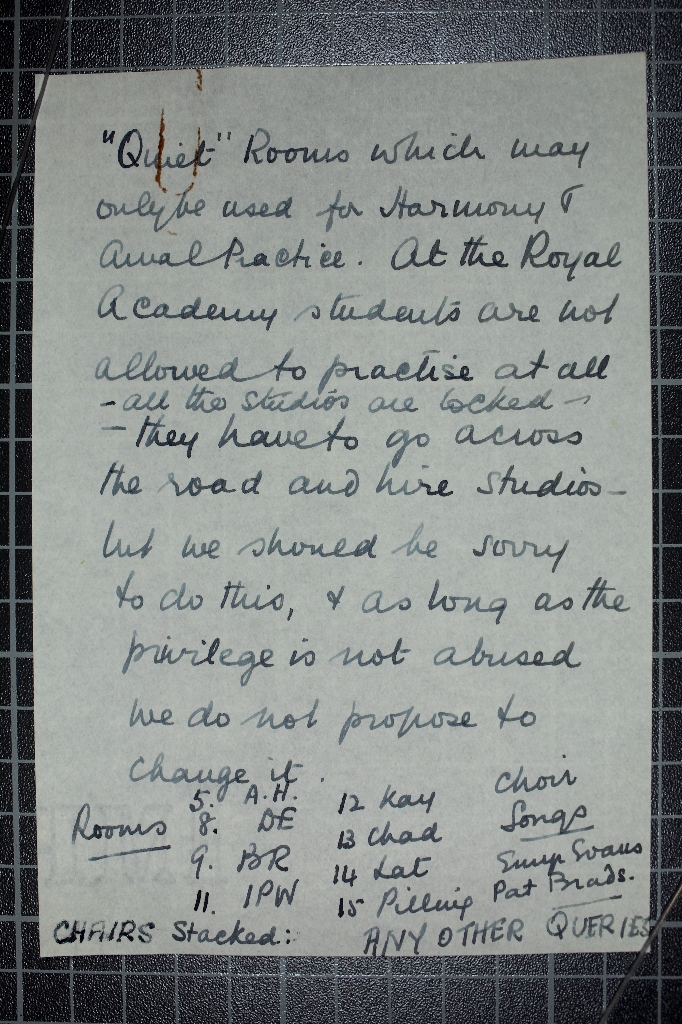 "Quiet" Rooms which may
only be used for Harmony &
Aural Practice. At the Royal
Academy students are not
allowed to practise at all
- all the studios are locked -
- they have to go across
the road and hire studios -
but we should be sorry
to do this, & as long as the
privilege is not abused
we do not propose to
change it.
Rooms
5. A.H.
8. DE
9. BR
11. IPW
12 Kay
13 Chad
14 Lat
15 Pilling
Choir
Songs
Evans
Pat Brads.
CHAIRS Stacked:
ANY OTHER QUERIES